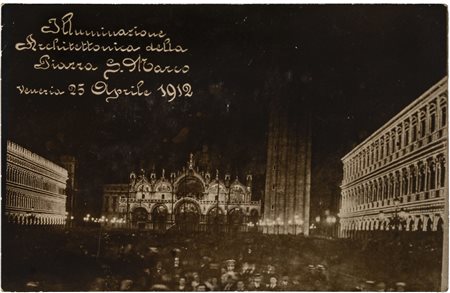 Illuminazione
Architettonica della
Piazza S. Marco
Venezia 25 Aprile 1912